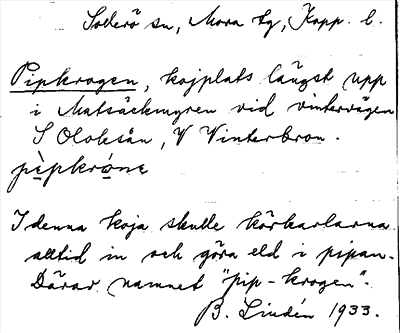 Solerö sn, Mora tg, Kopp. l.
Pipkrogen, kojplats längst upp
i Matsäckmyren vid vintervägen
S Oloksån, V Vinterbron.
pèpkrónε
I denna koja skulle körkarlarna
alltid in och göra eld i pipan.
Därav namnet "pip-krogen".
B. Lindén 1933.